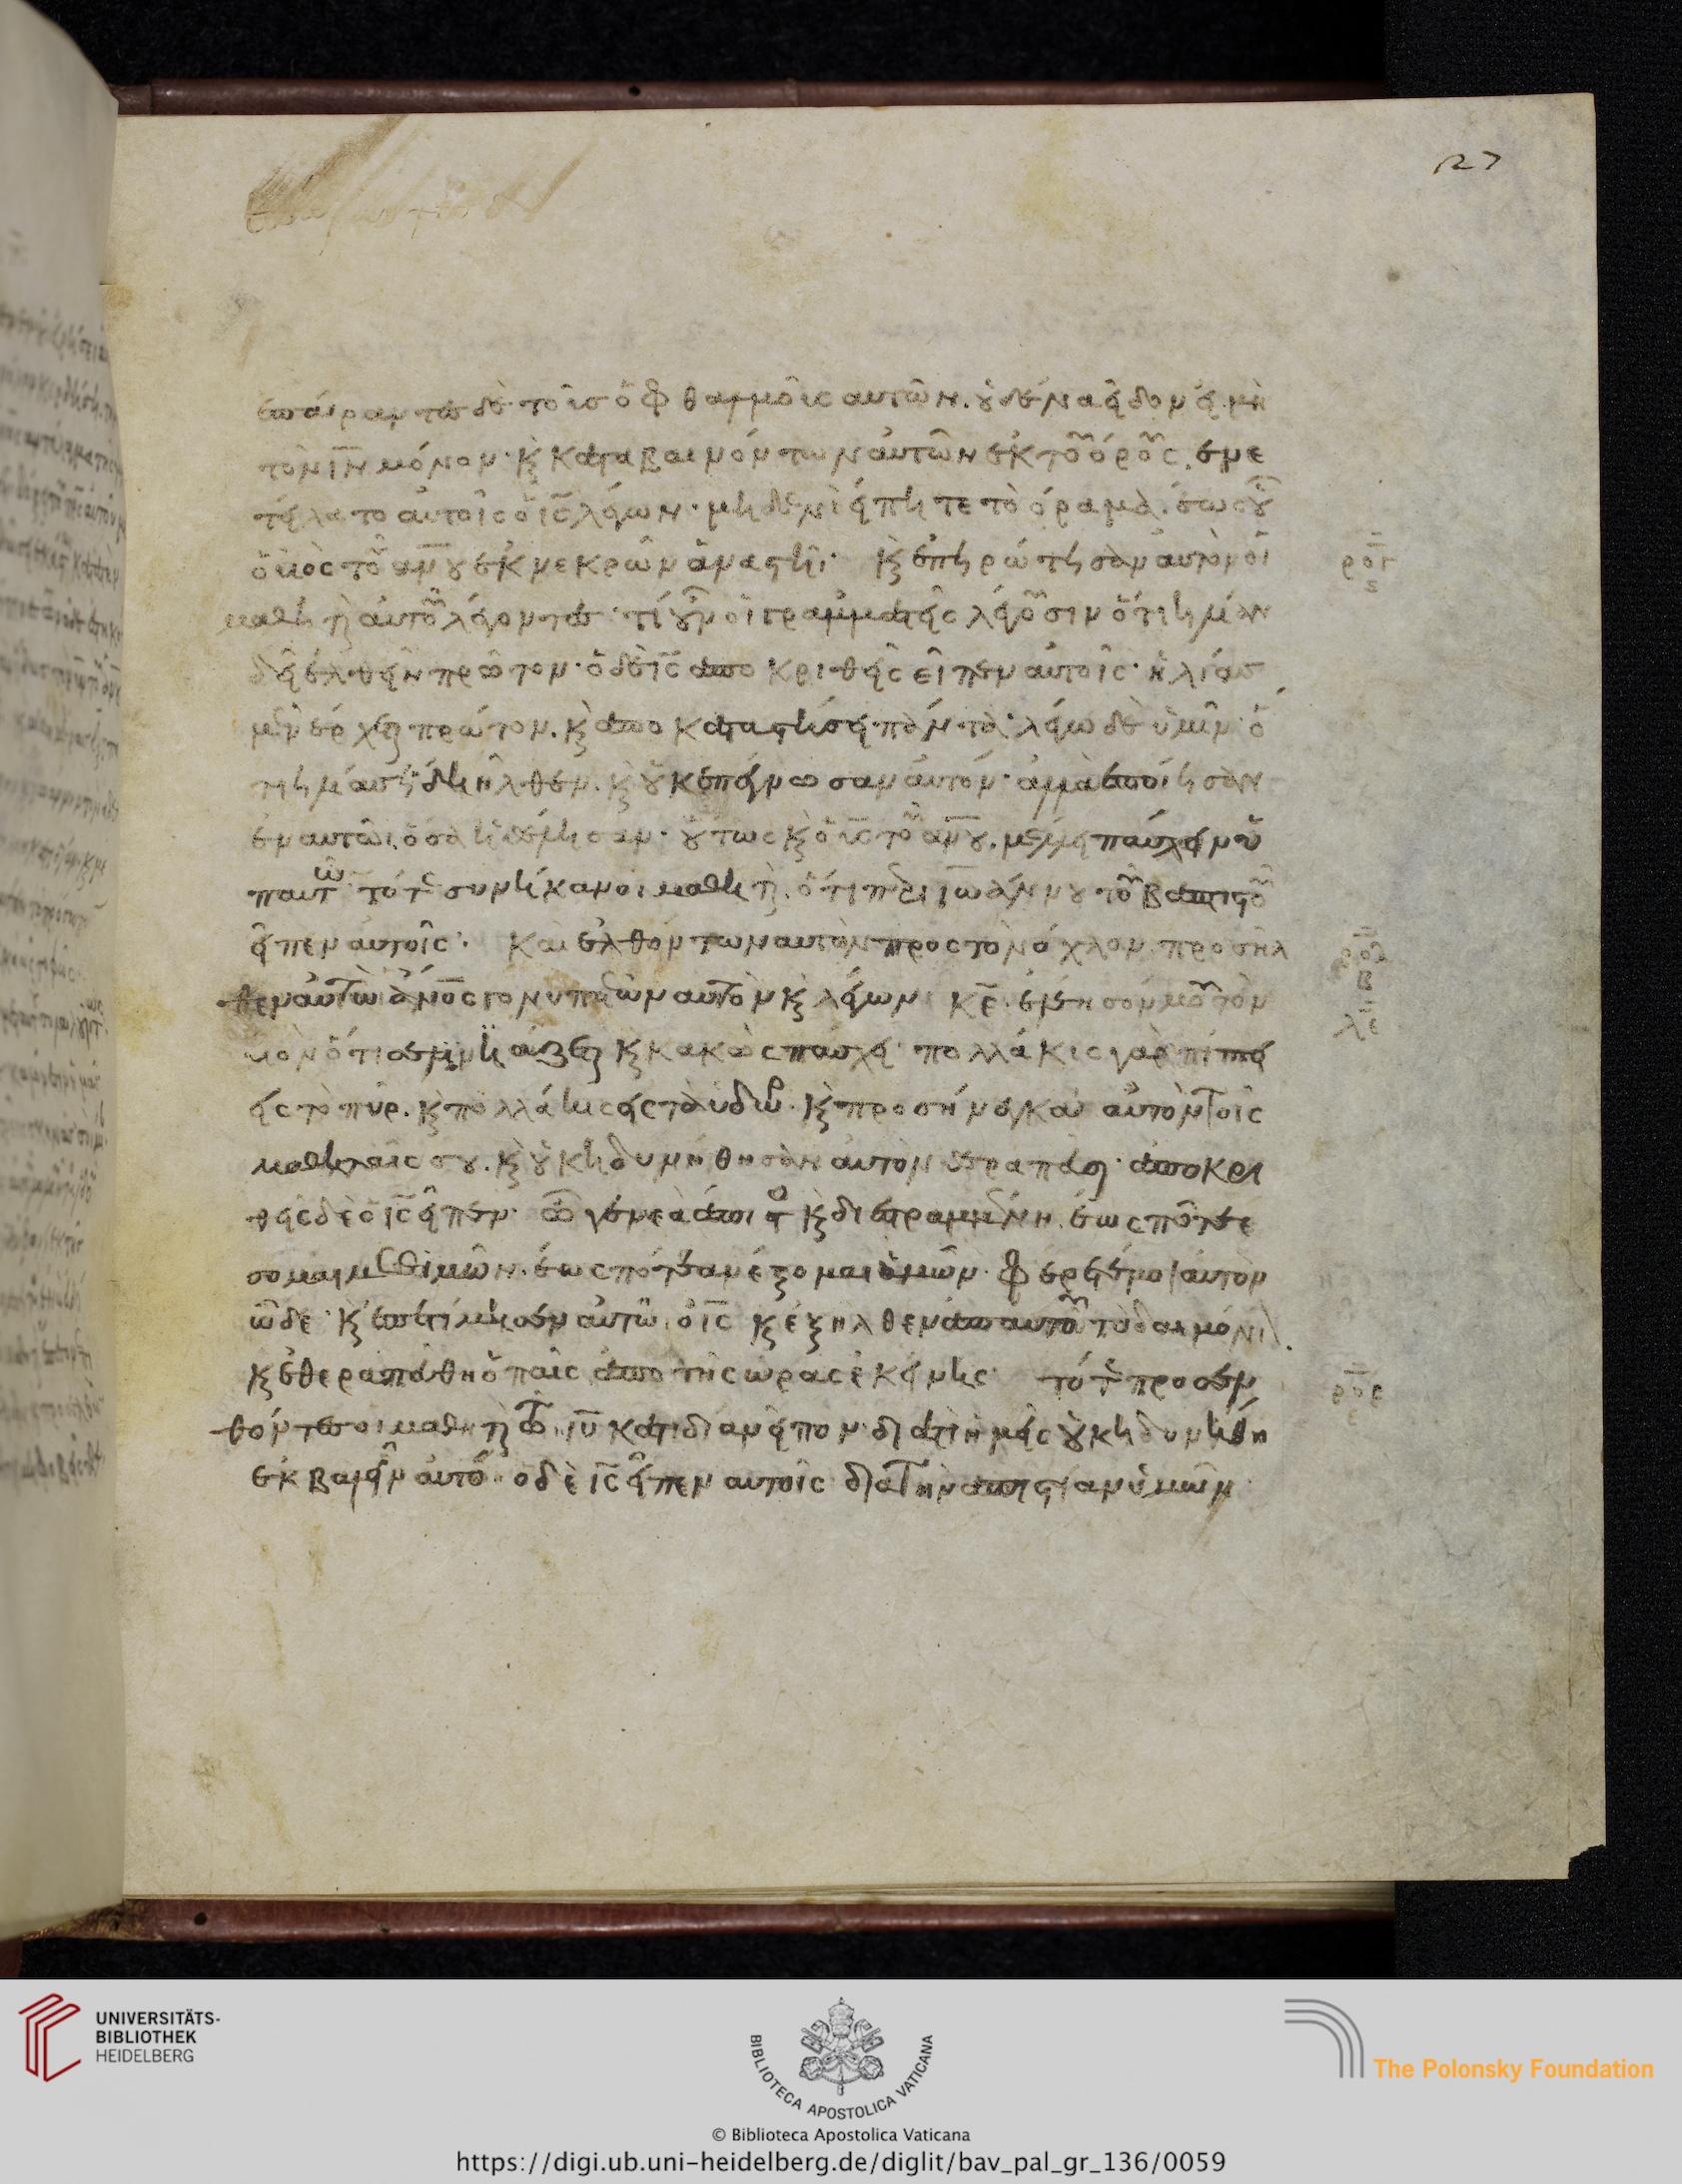 127
ἐπάραντες δὲ τοὺς ὀφθαλμοὺς αὐτῶν. οὐδένα εἶδον εἰ μὴ
τὸν ιν μόνον· κ καταβαινόντων αὐτῶν ἐκ τοῦ ὄρους, ἐνε
τείλατο αὐτοῖς ὁ ις λέγων· μηδενὶ εἴπητε τὸ ὅραμα. ἕως οὗ
ὁ υἱὸς τοῦ ανου ἐκ νεκρῶν ἀναστῆι· κ ἐπηρώτησαν αὐτὸν οἱ
ρογ
ς
μαθηταὶ αὐτοῦ λέγοντες· τί οὖν οἱ γραμματεῖς λέγουσιν ὅτι ηλίαν
δεῖ ἐλθεῖν πρῶτον· ὁ δὲ ις ἀποκριθεὶς εἶπεν αὐτοῖς· ἠλίας
μὲν ἔρχεται πρῶτον. κ ἀποκαταστήσει πάντα· λέγω δὲ ὑμῖν ὅ
τι ηλίας ἤδη ἦλθεν. κ οὐκ ἐπέγνωσαν αὐτόν· ἀλλὰ ἐποίησαν
ἐν αὐτῶι ὅσα ἠθέλησαν· οὕτως κ ὁ υς τοῦ ανου. μέλλει πάσχειν ὑ
π αυτῶ τότε συνῆκαν οι μαθηταὶ. ὅτι περὶ ιωάννου τοῦ βαπτιστοῦ
εἶπεν αὐτοῖς· Καὶ ἐλθόντων αὐτῶν πρὸς τὸν ὄχλον. προσῆλ
ροδ
β
θεν αὐτῶ ανος γονυπετῶν αὐτὸν κ λέγων κε. ἐλέησόν μου τὸν
λε
υἱὸν ὅτι σεληνιάζεται κ κακῶς πάσχει· πολλάκις γὰρ πίπτει
εἰς τὸ πῦρ. κ πολλάκις εἰς τὸ ὕδωρ. κ προσήνεγκα αὐτὸν τοῖς
μαθηταῖς σου. κ οὐκ ἠδυνήθησαν αὐτὸν θεραπεῦσαι· ἀποκρι
θεὶς δὲ ὁ ις εἶπεν· ὦ γενεὰ ἄπιστος κ διεστραμμένη. ἕως πότε
ἔσομαι μεθ ὑμῶν. ἕως πότε ἀνέξομαι ὑμῶν. φέρετέ μοι αὐτὸν
ὧδε· κ ἐπετίμησεν αὐτῶ ὁ ις κ ἐξῆλθεν ἀπ αὐτοῦ τὸ δαιμόνι
κ ἐθεραπεύθη ὁ παῖς ἀπὸ τῆς ὥρας ἐκείνης· τότε προσελ
ροε
ε
θόντες οι μαθηταὶ τῶ ιυ κατιδίαν εἶπον· διατὶ ἡμεῖς οὐκ ἠδυνήθη
ἐκβαλεῖν αὐτό· ὁ δὲ ις εἶπεν αὐτοῖς διὰ τὴν ἀπιστίαν ὑμῶν·
UNIVERSITÄTS-
BIBLIOTHEK
HEIDELBERG
BIBLIOTECA APOSTOLICA VATICANA
The Polonsky Foundation
© Biblioteca Apostolica Vaticana
https://digi.ub.uni-heidelberg.de/diglit/bav_pal_gr_136/0059